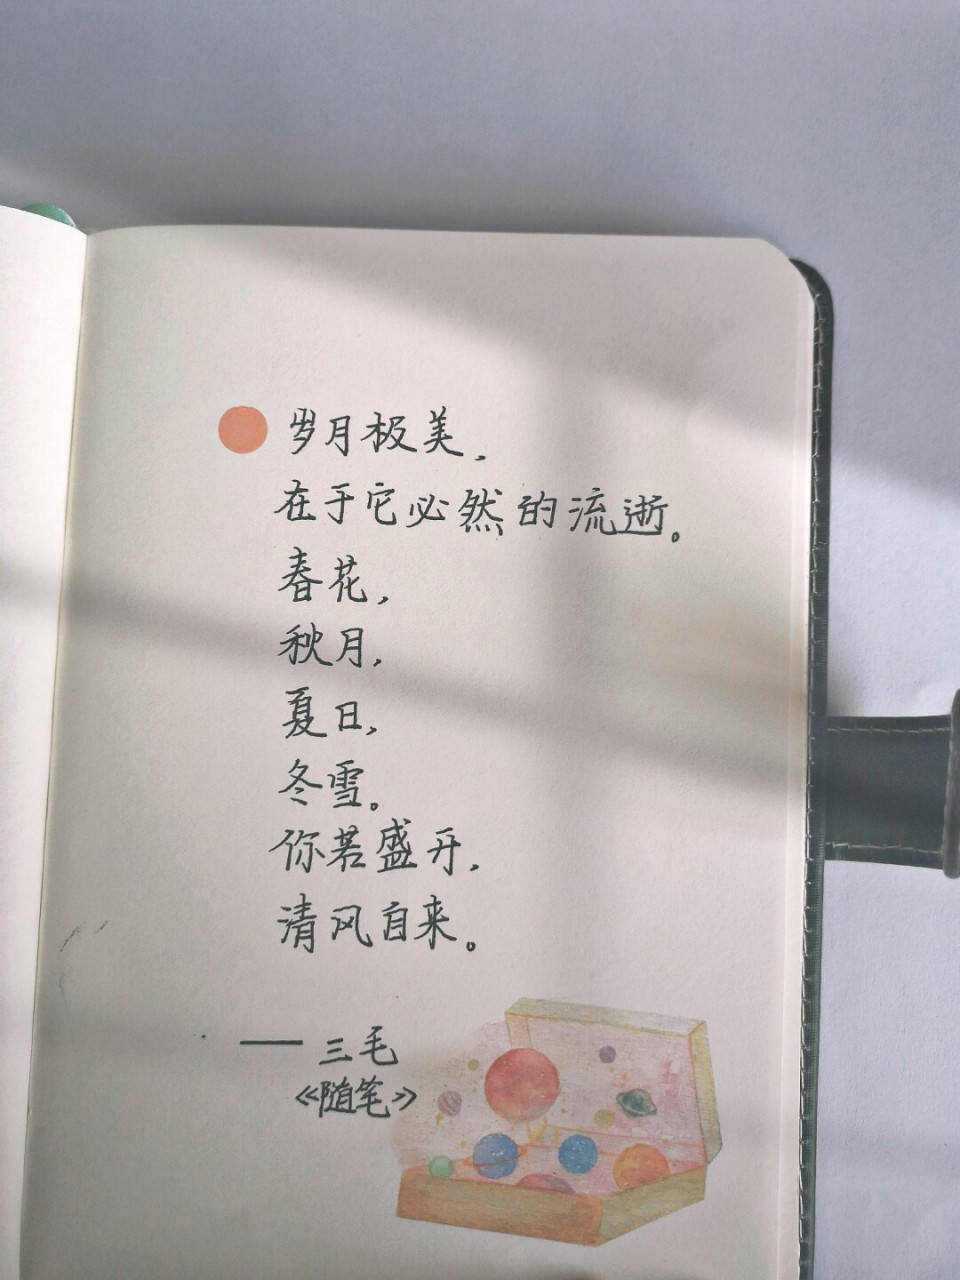 岁月极美，
在于它必然的流逝。
春花，
秋月，
夏日，
冬雪。
你若盛开，
清风自来。
——三毛
《随笔》